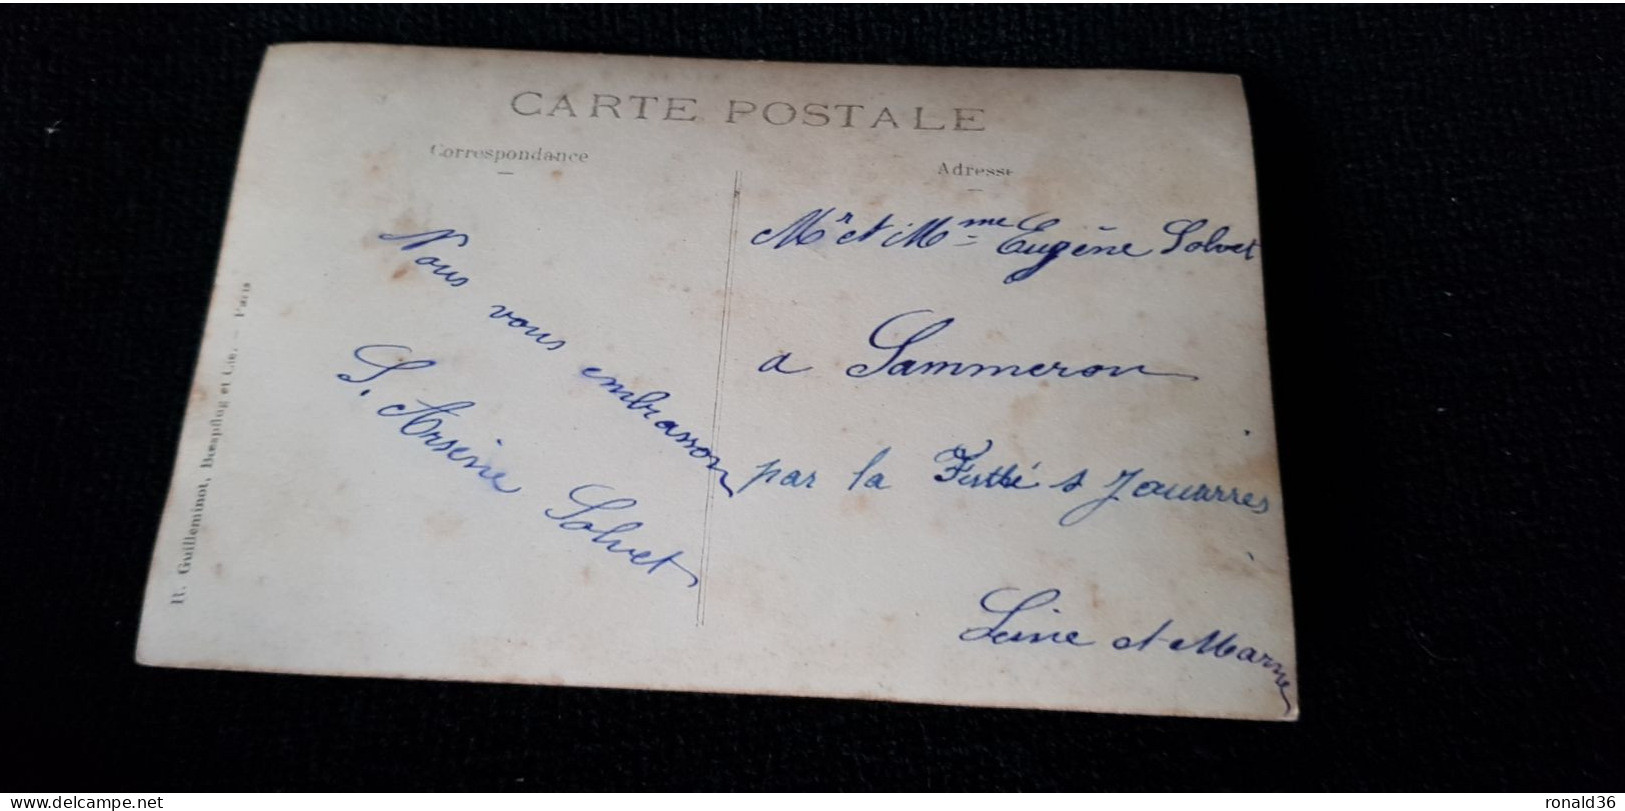 CARTE POSTALE
Correspondance
Adresse
Nous vous embrasson
S. Arsène Solvet
Mr et Mme Eugène Solvet
a Sammeron
par la Ferthé s Jouarres
Seine et Marne
R. Guilleminot, Bœspflug et Cie. – Paris
www.delcampe.net
ronald36